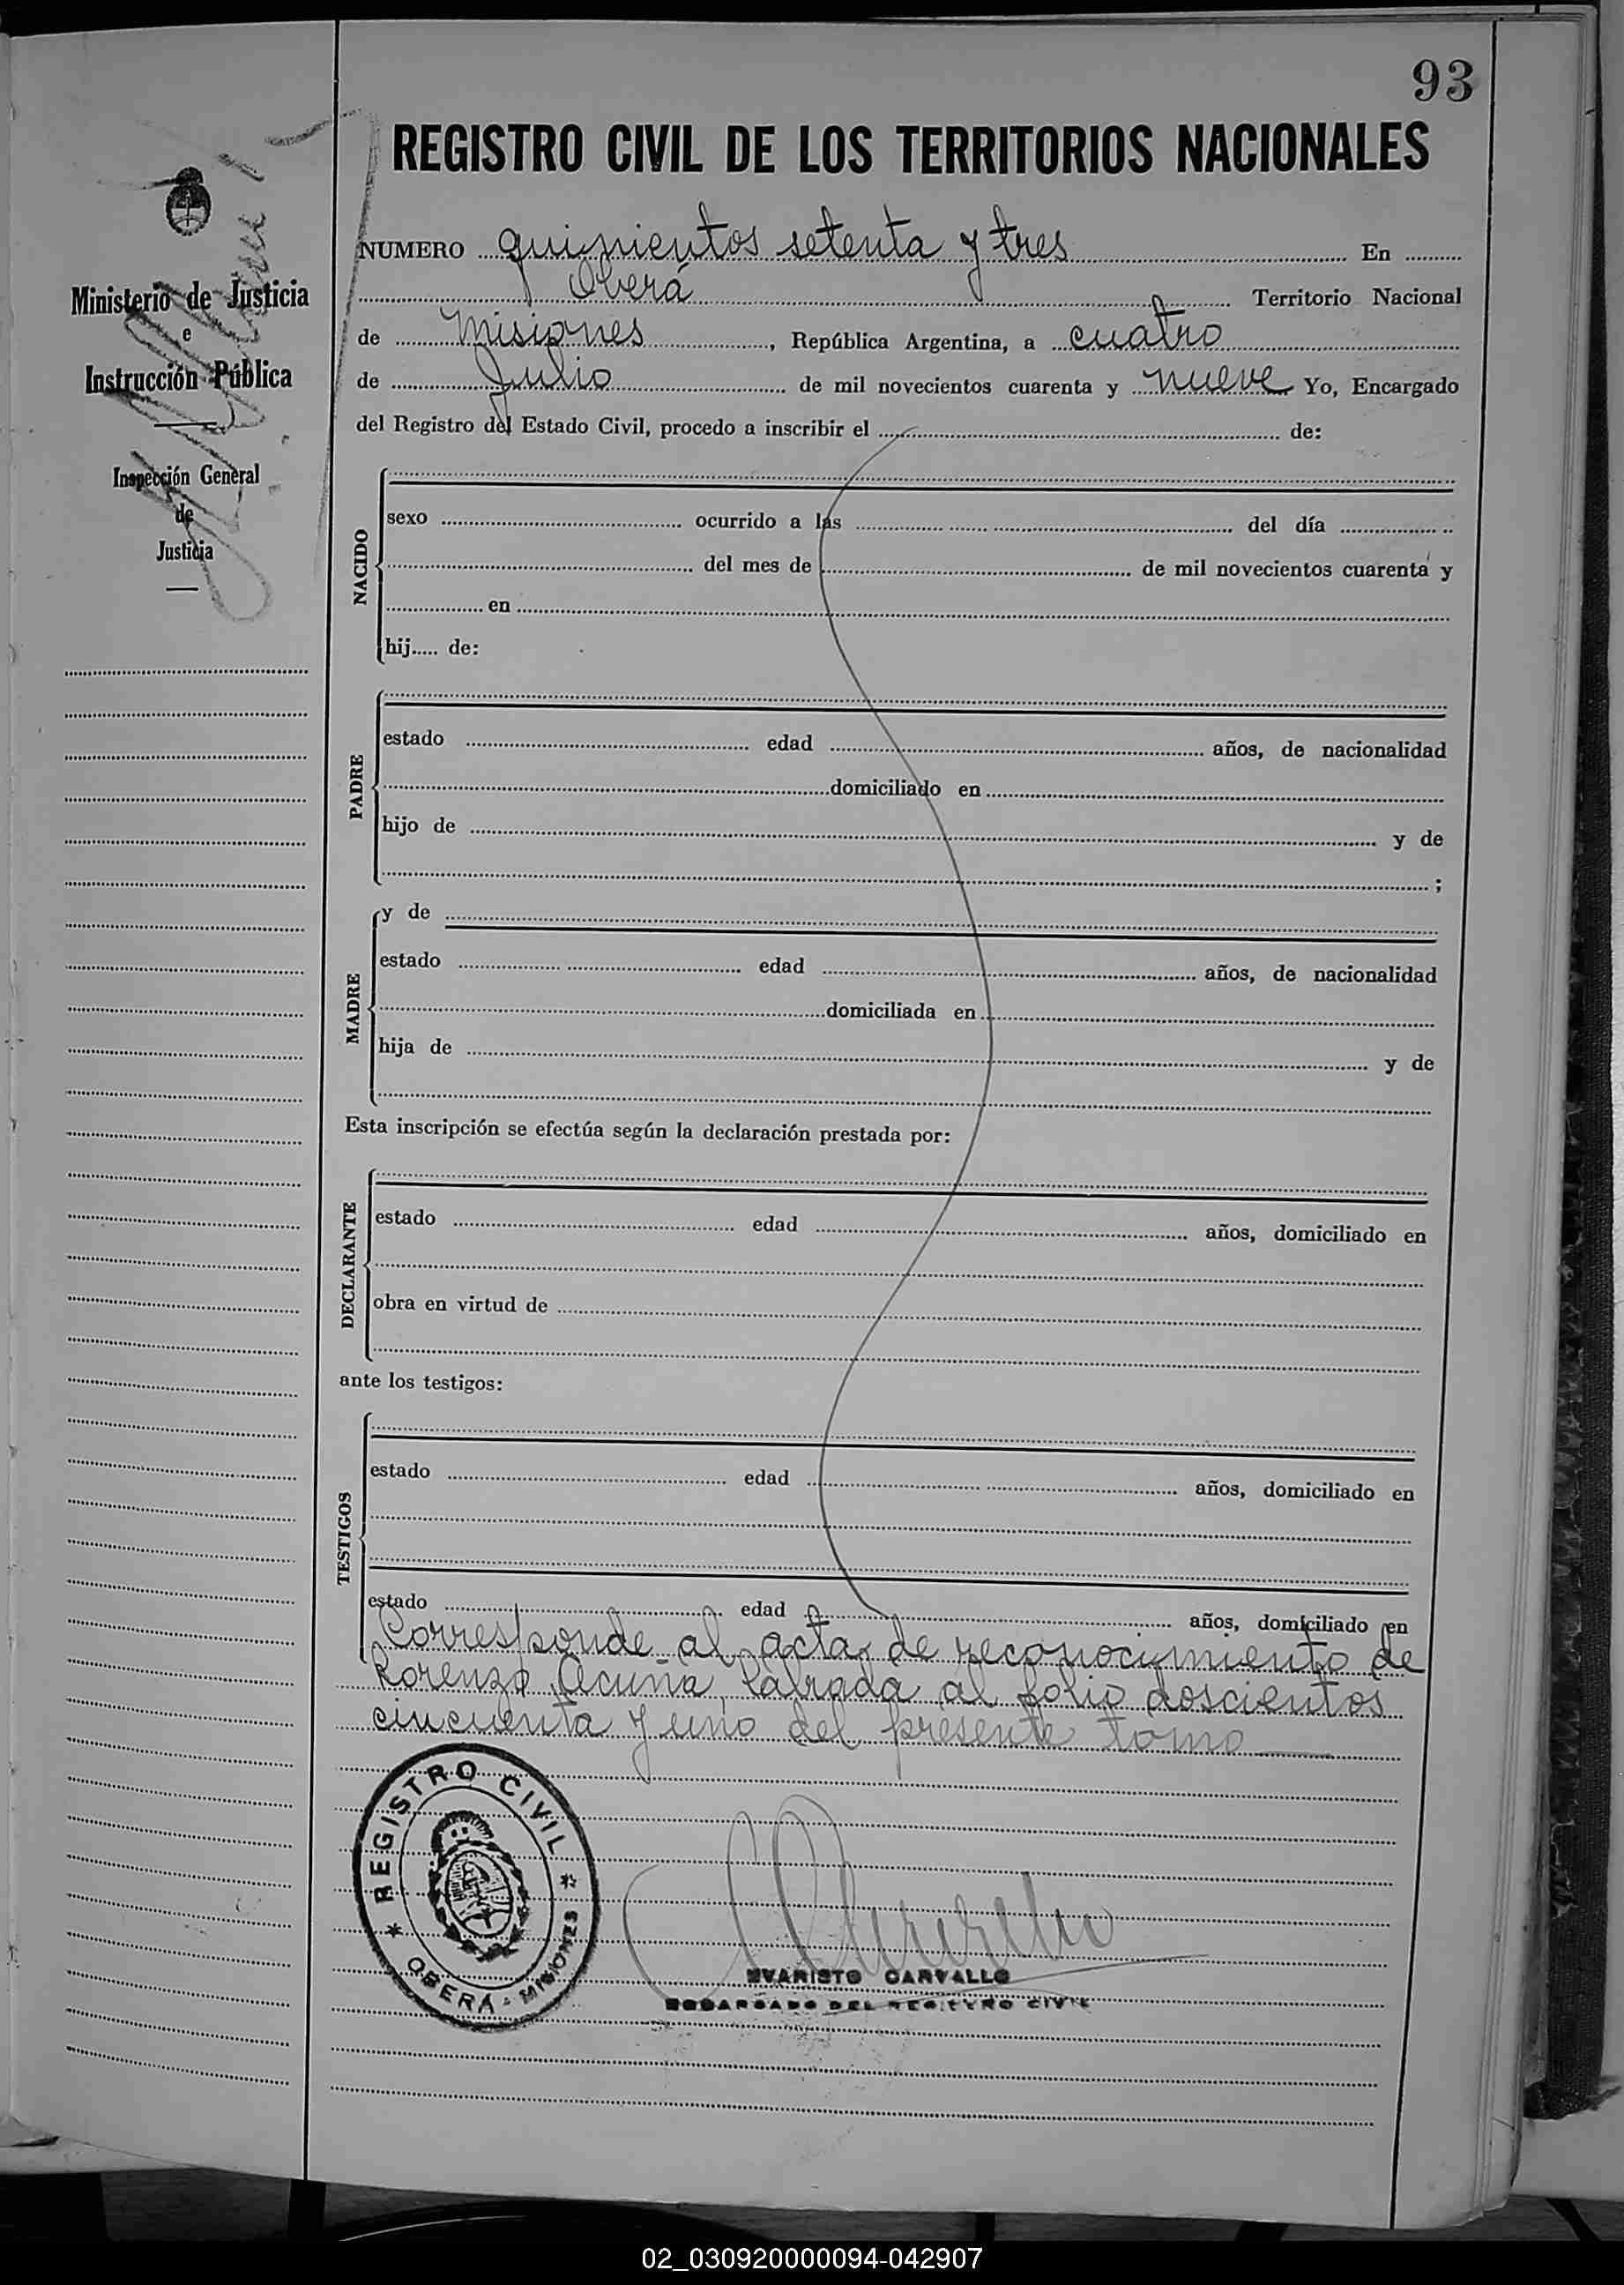 93
REGISTRO CIVIL DE LOS TERRITORIOS NACIONALES
Ministerio de Justicia
e
Instrucción Pública
Inspección General
de
Justicia
NUMERO quinientos setenta y tres En
Oberá Territorio Nacional
de Misiones, República Argentina, a cuatro
de Julio de mil novecientos cuarenta y nueve Yo, Encargado
del Registro del Estado Civil, procedo a inscribir el de:
NACIDO
sexo ocurrido a las del día
del mes de de mil novecientos cuarenta y
en
hij..... de:
PADRE
estado edad años, de nacionalidad
domiciliado en
hijo de y de
;
MADRE
y de
estado edad años, de nacionalidad
domiciliada en
hija de y de
Esta inscripción se efectúa según la declaración prestada por:
DECLARANTE
estado edad años, domiciliado en
obra en virtud de
ante los testigos:
TESTIGOS
estado edad años, domiciliado en
estado edad años, domiciliado en
Corresponde al acta de reconocimiento de
Lorenzo Acuña, labrada al folio doscientos
cincuenta y uno del presente tomo
REGISTRO CIVIL
OBERÁ - MISIONES
EVARISTO CARVALLO
ENCARGADO DEL REGISTRO CIVIL
02_030920000094-042907